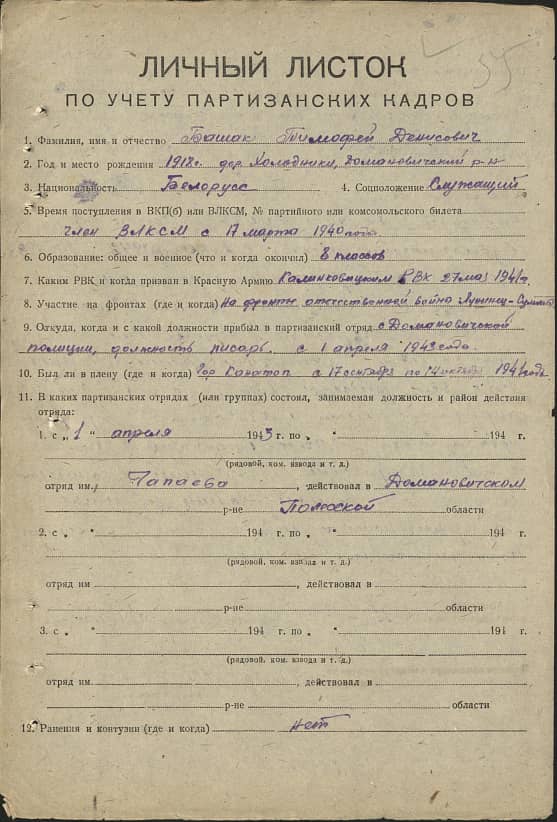 55
ЛИЧНЫЙ ЛИСТОК
ПО УЧЕТУ ПАРТИЗАНСКИХ КАДРОВ
1. Фамилия, имя и отчество Башак Тимофей Денисович
2. Год и место рождения 1918г. дер. Холодники, Домановический р-н
3. Национальность Белорусс 4. Соцположение Служащий
5. Время поступления в ВКП(б) или ВЛКСМ, № партийного или комсомольского билета
член ВЛКСМ с 17 марта 1940 года
6. Образование: общее и военное (что и когда окончил) 8 классов
7. Каким РВК и когда призван в Красную Армию Калинковицким РВК 27 мая 1941г.
8. Участие на фронтах (где и когда) на фронте отечественной война
9. Откуда, когда и с какой должности прибыл в партизанский отряд с Домановичской
полиции, должность писарь. с 1 апреля 1943 года.
10. Был ли в плену (где и когда) гор Канатоп с 17 сентября по 14 октября 1941 года
11. В каких партизанских отрядах (или группах) состоял, занимаемая должность и район действия
отряда:
1. с „1 “ апреля 1943 г. по „ “ 194 г.
(рядовой, ком. взвода и т. д.)
отряд им. Чапаева, действовал в Домановитском
р-не Полеской области
2. с „ “ 194 г. по „ “ 194 г.
(рядовой, ком. взвода и т. д.)
отряд им , действовал в
р-не области
3. с „ “ 194 г. по „ “ 194 г.
(рядовой, ком. взвода и т. д.)
отряд им. , действовал в
р-не области
12. Ранения и контузии (где и когда) нет